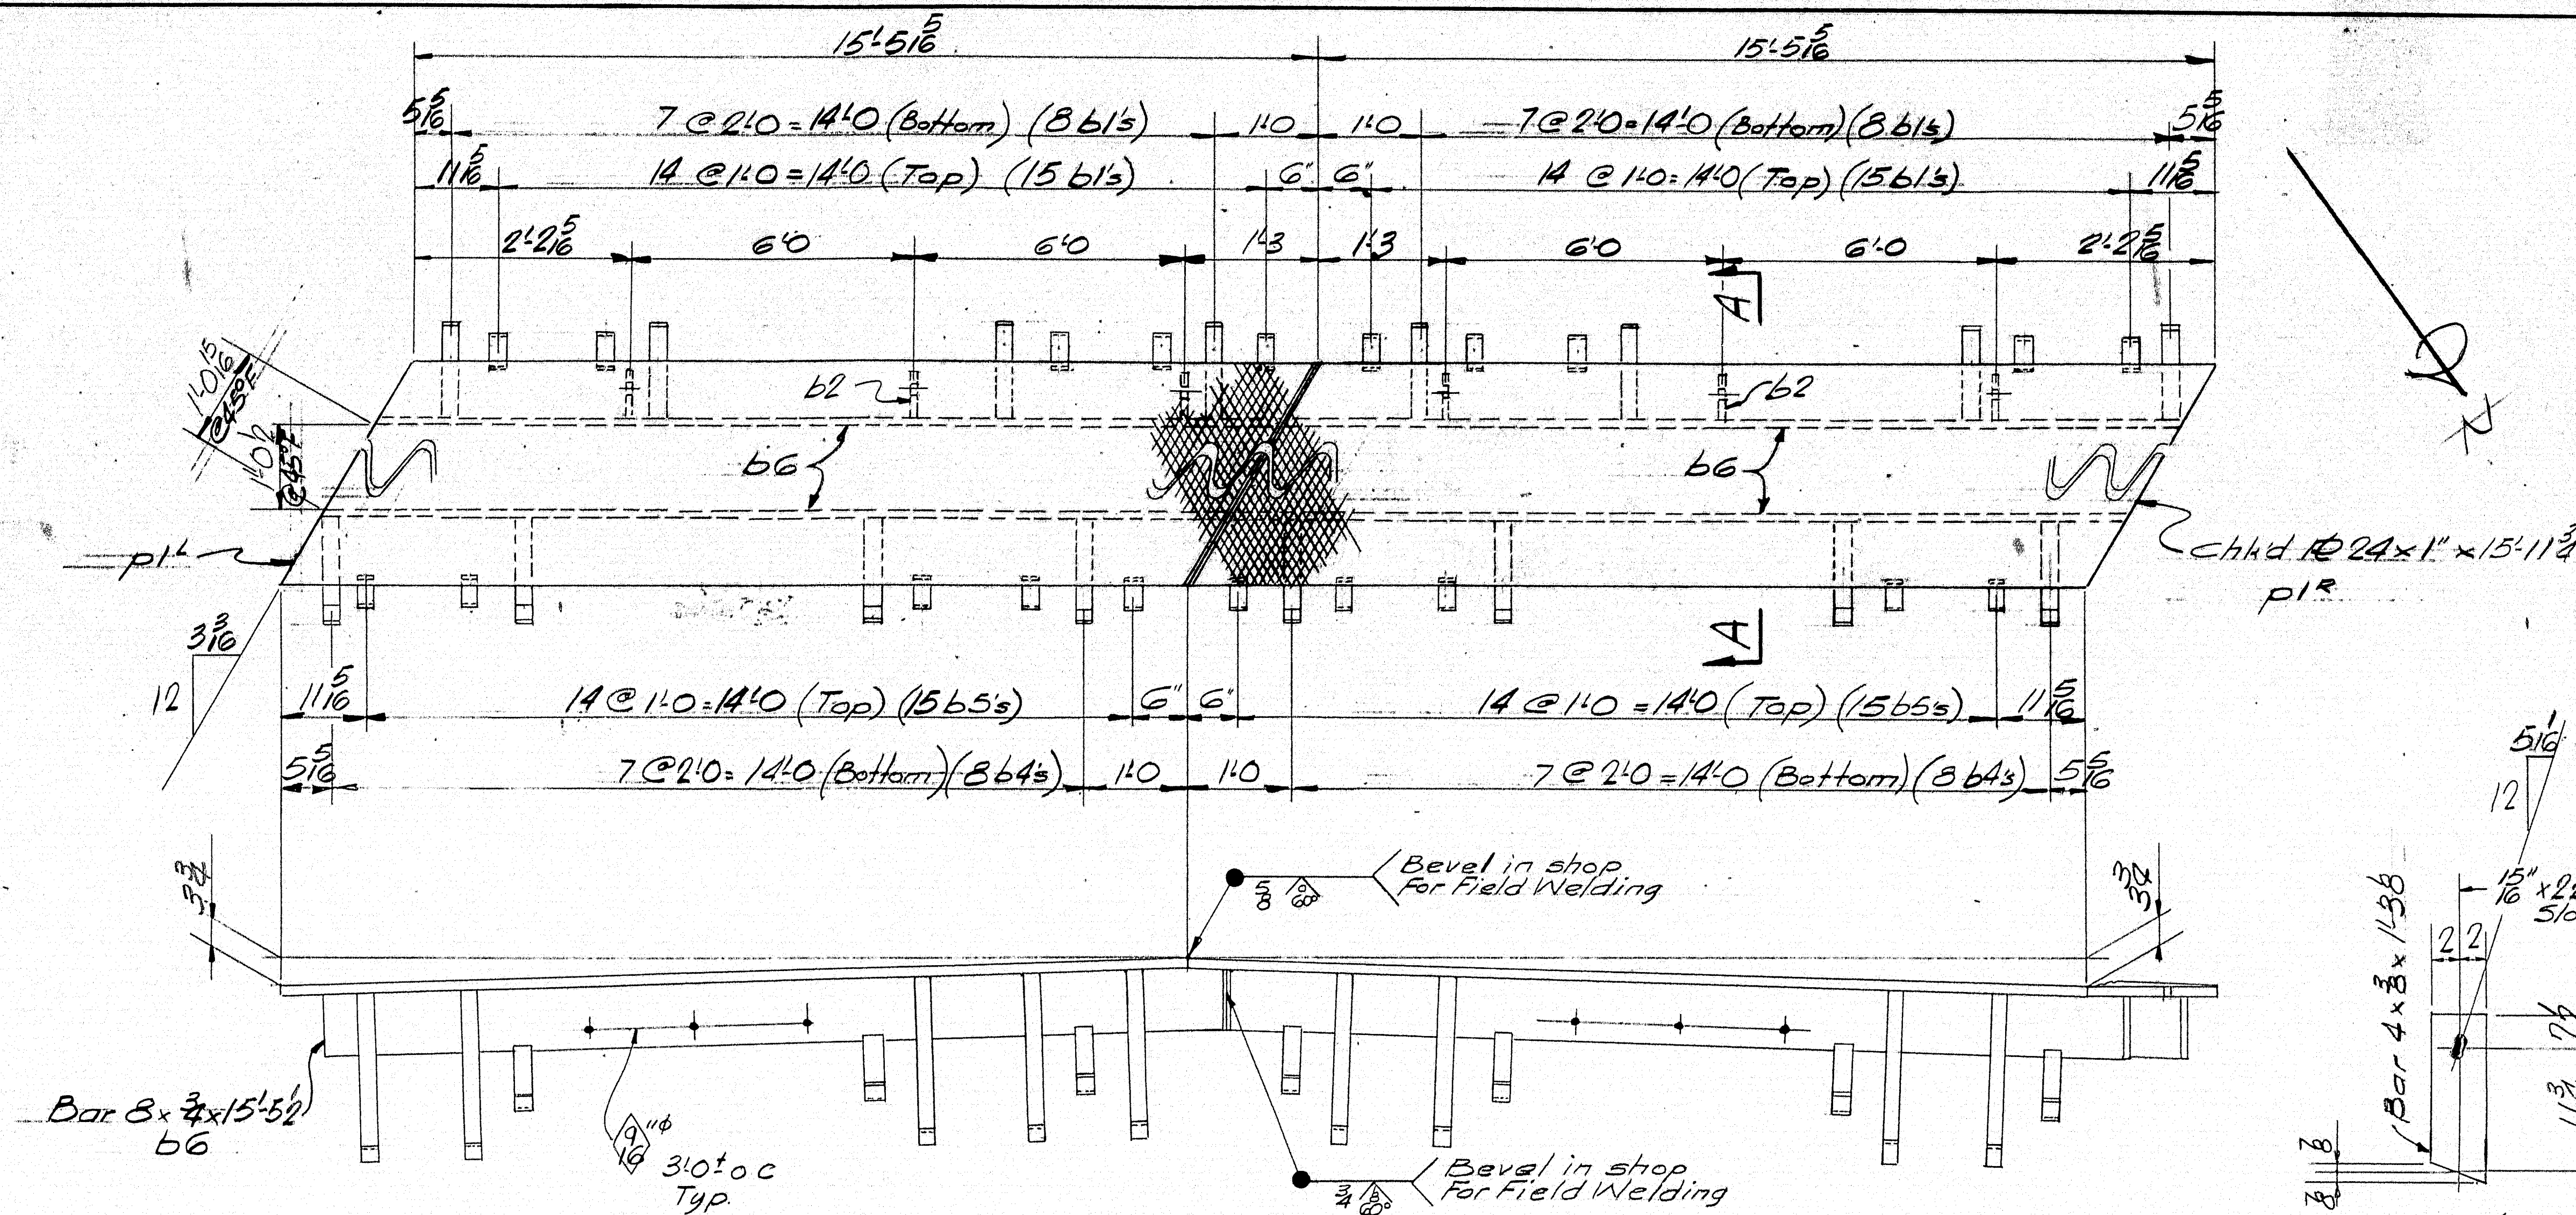 15'-5 5/16 15'-5 5/16
5 5/16 7 @ 2'-0 = 14'-0 (Bottom) (8 b1's) 1'-0 1'-0 7 @ 2'-0 = 14'-0 (Bottom) (8 b1's) 5 5/16
11 5/16 14 @ 1'-0 = 14'-0 (Top) (15 b1's) 6" 6" 14 @ 1'-0 = 14'-0 (Top) (15 b1's) 11 5/16
2'-2 5/16 6'-0 6'-0 1'-3 1'-3 6'-0 6'-0 2'-2 5/16
A
1'-0 15/16
@45°F
1'-0 1/2
@45°F
b2
b2
b6
b6
p1L
Chk'd PL 24 x 1" x 15'-11 3/4
p1R
3 3/16
12
A
11 5/16 14 @ 1'-0 = 14'-0 (Top) (15 b5's) 6" 6" 14 @ 1'-0 = 14'-0 (Top) (15 b5's) 11 5/16
5 5/16 7 @ 2'-0 = 14'-0 (Bottom) (8 b4's) 1'-0 1'-0 7 @ 2'-0 = 14'-0 (Bottom) (8 b4's) 5 5/16
5 1/16
12
3 3/4
5/8 60°
Bevel in shop
For Field Welding
3 3/4
15/16" x 2
Slo
2 2
Bar 4 x 3/8 x 1'-3 1/8
7 1/2
11 3/4
7/8
7/8
Bar 8 x 3/4 x 15'-5 1/2
b6
9/16 "φ
3'-0± O C
Typ.
3/4 60°
Bevel in shop
For Field Welding
N